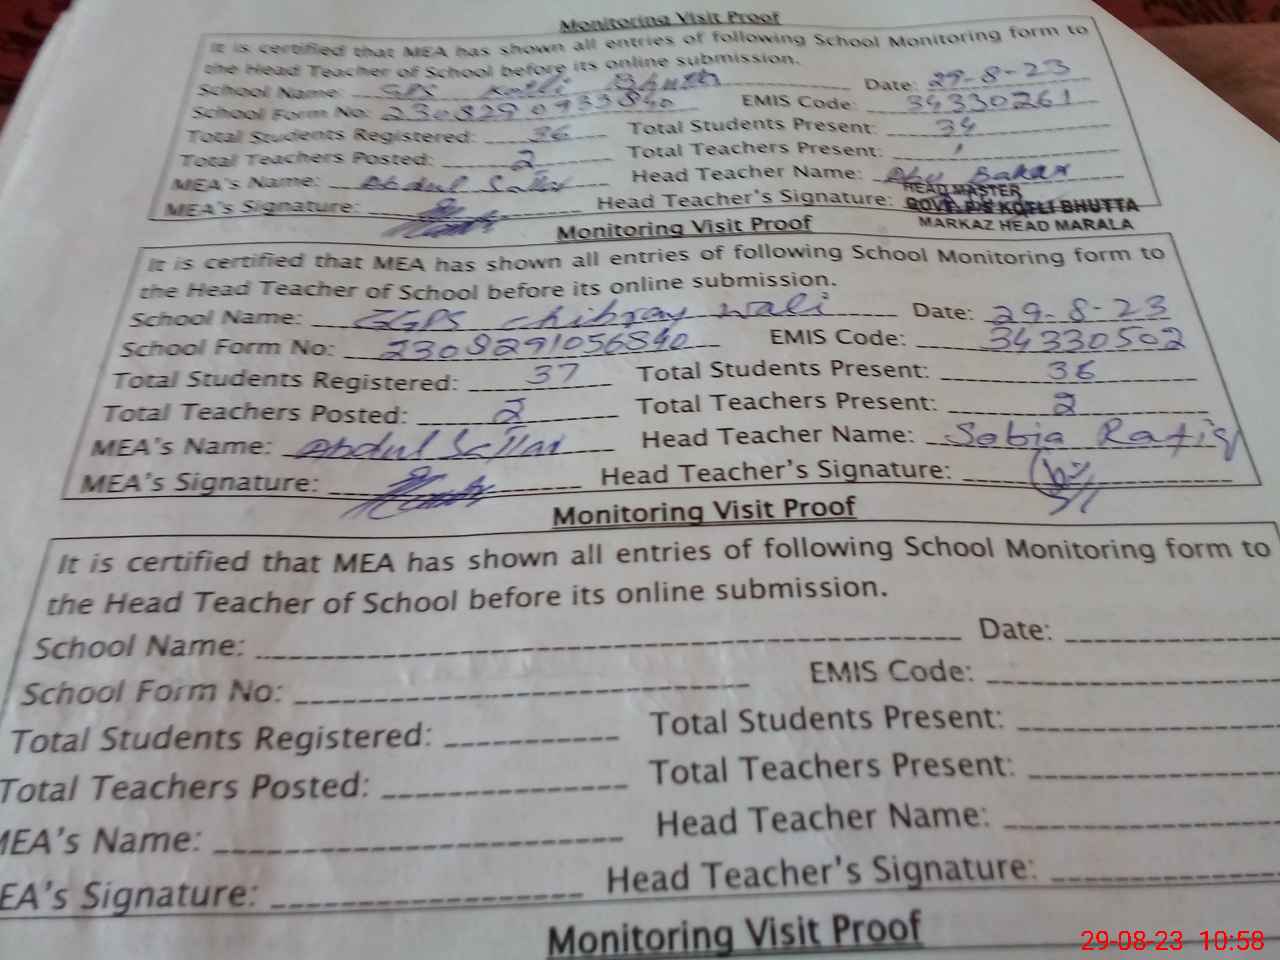 Monitoring Visit Proof
It is certified that MEA has shown all entries of following School Monitoring form to
the Head Teacher of School before its online submission.
School Name: GPS Kotli Bhutta Date: 29-8-23
School Form No: 2308290933840 EMIS Code: 34330261
Total Students Registered: 36 Total Students Present: 34
Total Teachers Posted: 2 Total Teachers Present: 1
MEA's Name: Abdul Sattar Head Teacher Name: Abu Bakar
MEA's Signature: Head Teacher's Signature:
HEAD MASTER
GOVT. P/S KOTLI BHUTTA
MARKAZ HEAD MARALA
Monitoring Visit Proof
It is certified that MEA has shown all entries of following School Monitoring form to
the Head Teacher of School before its online submission.
School Name: GGPS Chibray Wali Date: 29-8-23
School Form No: 2308291056840 EMIS Code: 34330502
Total Students Registered: 37 Total Students Present: 36
Total Teachers Posted: 2 Total Teachers Present: 2
MEA's Name: Abdul Sattar Head Teacher Name: Sobia Rafiq
MEA's Signature: Head Teacher's Signature:
Monitoring Visit Proof
It is certified that MEA has shown all entries of following School Monitoring form to
the Head Teacher of School before its online submission.
School Name: Date:
School Form No: EMIS Code:
Total Students Registered: Total Students Present:
Total Teachers Posted: Total Teachers Present:
MEA's Name: Head Teacher Name:
EA's Signature: Head Teacher's Signature:
Monitoring Visit Proof
29-08-23 10:58